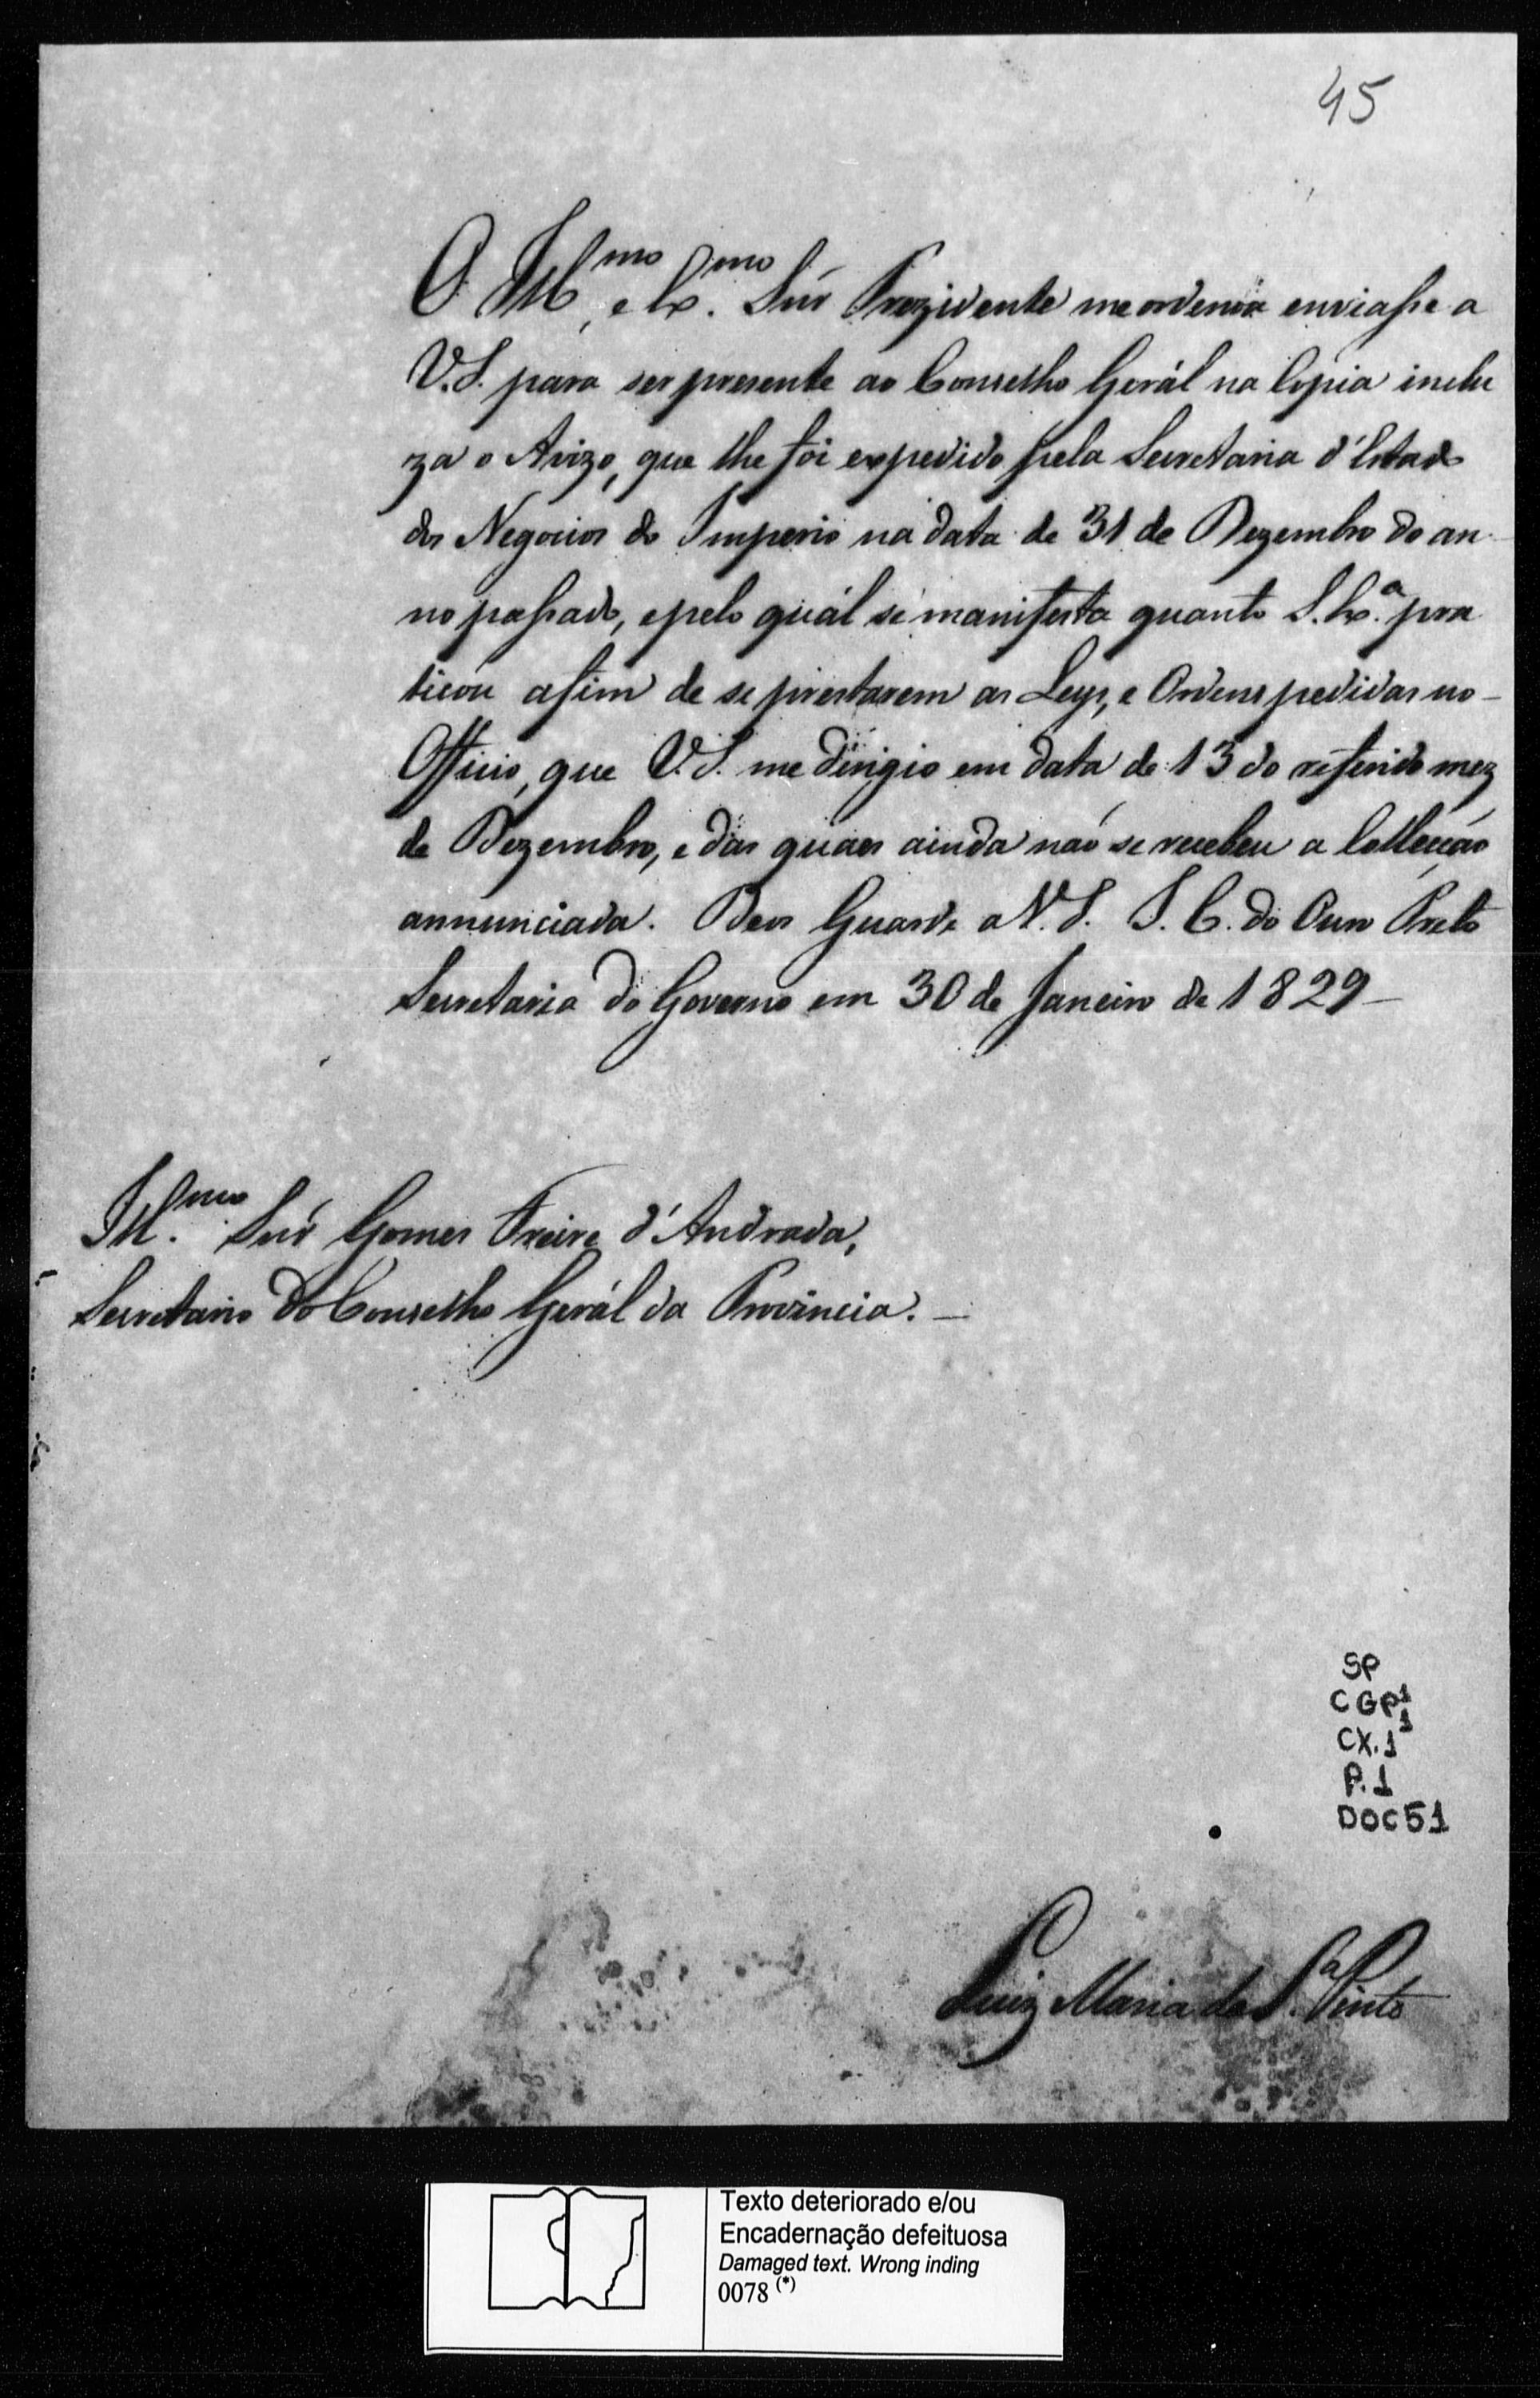 45
O Ill.mo, e Ex.mo Snr Prezidente me ordenou enviasse a
V.S. para ser presente ao Conselho Gerál na Copia inclu
za o Avizo, que lhe foi expedido pela Secretaria d'Estado
dos Negocios do Imperio na data de 31 de Dezembro do an-
no passado, e pelo quál se manifesta quanto S. Ex.a pra
ticou afim de se prestarem as Leys, e Ordens pedidas no-
Officio, que V.S. me dirigio em data de 13 do referido mez
de Dezembro, e das quaes ainda naõ se recebeu a Collecçaõ
annunciada. Deos Guarde a V.S. I. C. do Ouro Preto
Secretaria do Governo em 30 de Janeiro de 1829-
Ill.mo Snr Gomes Freire d'Andrada,
Secretario do Conselho Gerál da Provincia. -
SP
CGP1 1
CX.1
P.1
DOC51
Luiz Maria da S.a Pinto
Texto deteriorado e/ou
Encadernação defeituosa
Damaged text. Wrong inding
0078 (*)